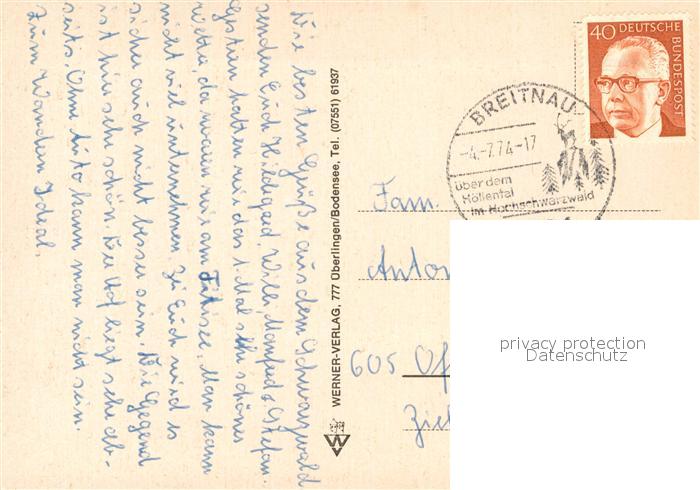 Die besten Grüße aus dem Schwarzwald
senden Euch Hildegard, Willi, Manfred & Stefan.
Gestern hatten wir das 1. Mal sehr schönes
Wetter, da waren wir am Titisee. Man kann
nicht viel unternehmen. Zu Euch wird es
sicher auch nicht besser sein. Die Gegend
ist hier sehr schön. Der Hof liegt sehr ab-
seits. Ohne Auto kann man nicht sein.
Zum Wandern Ideal.
WERNER-VERLAG, 777 Überlingen/Bodensee, Tel. (07551) 61937
W
40 DEUTSCHE BUNDESPOST
BREITNAU
-4.-7.74-17
über dem
Höllental
im Hochschwarzwald
Fam.
Anton
605 Of
Ziel
privacy protection
Datenschutz